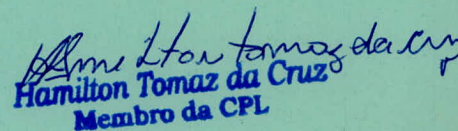 Hamilton Tomaz da Cruz
Hamilton Tomaz da Cruz
Membro da CPL